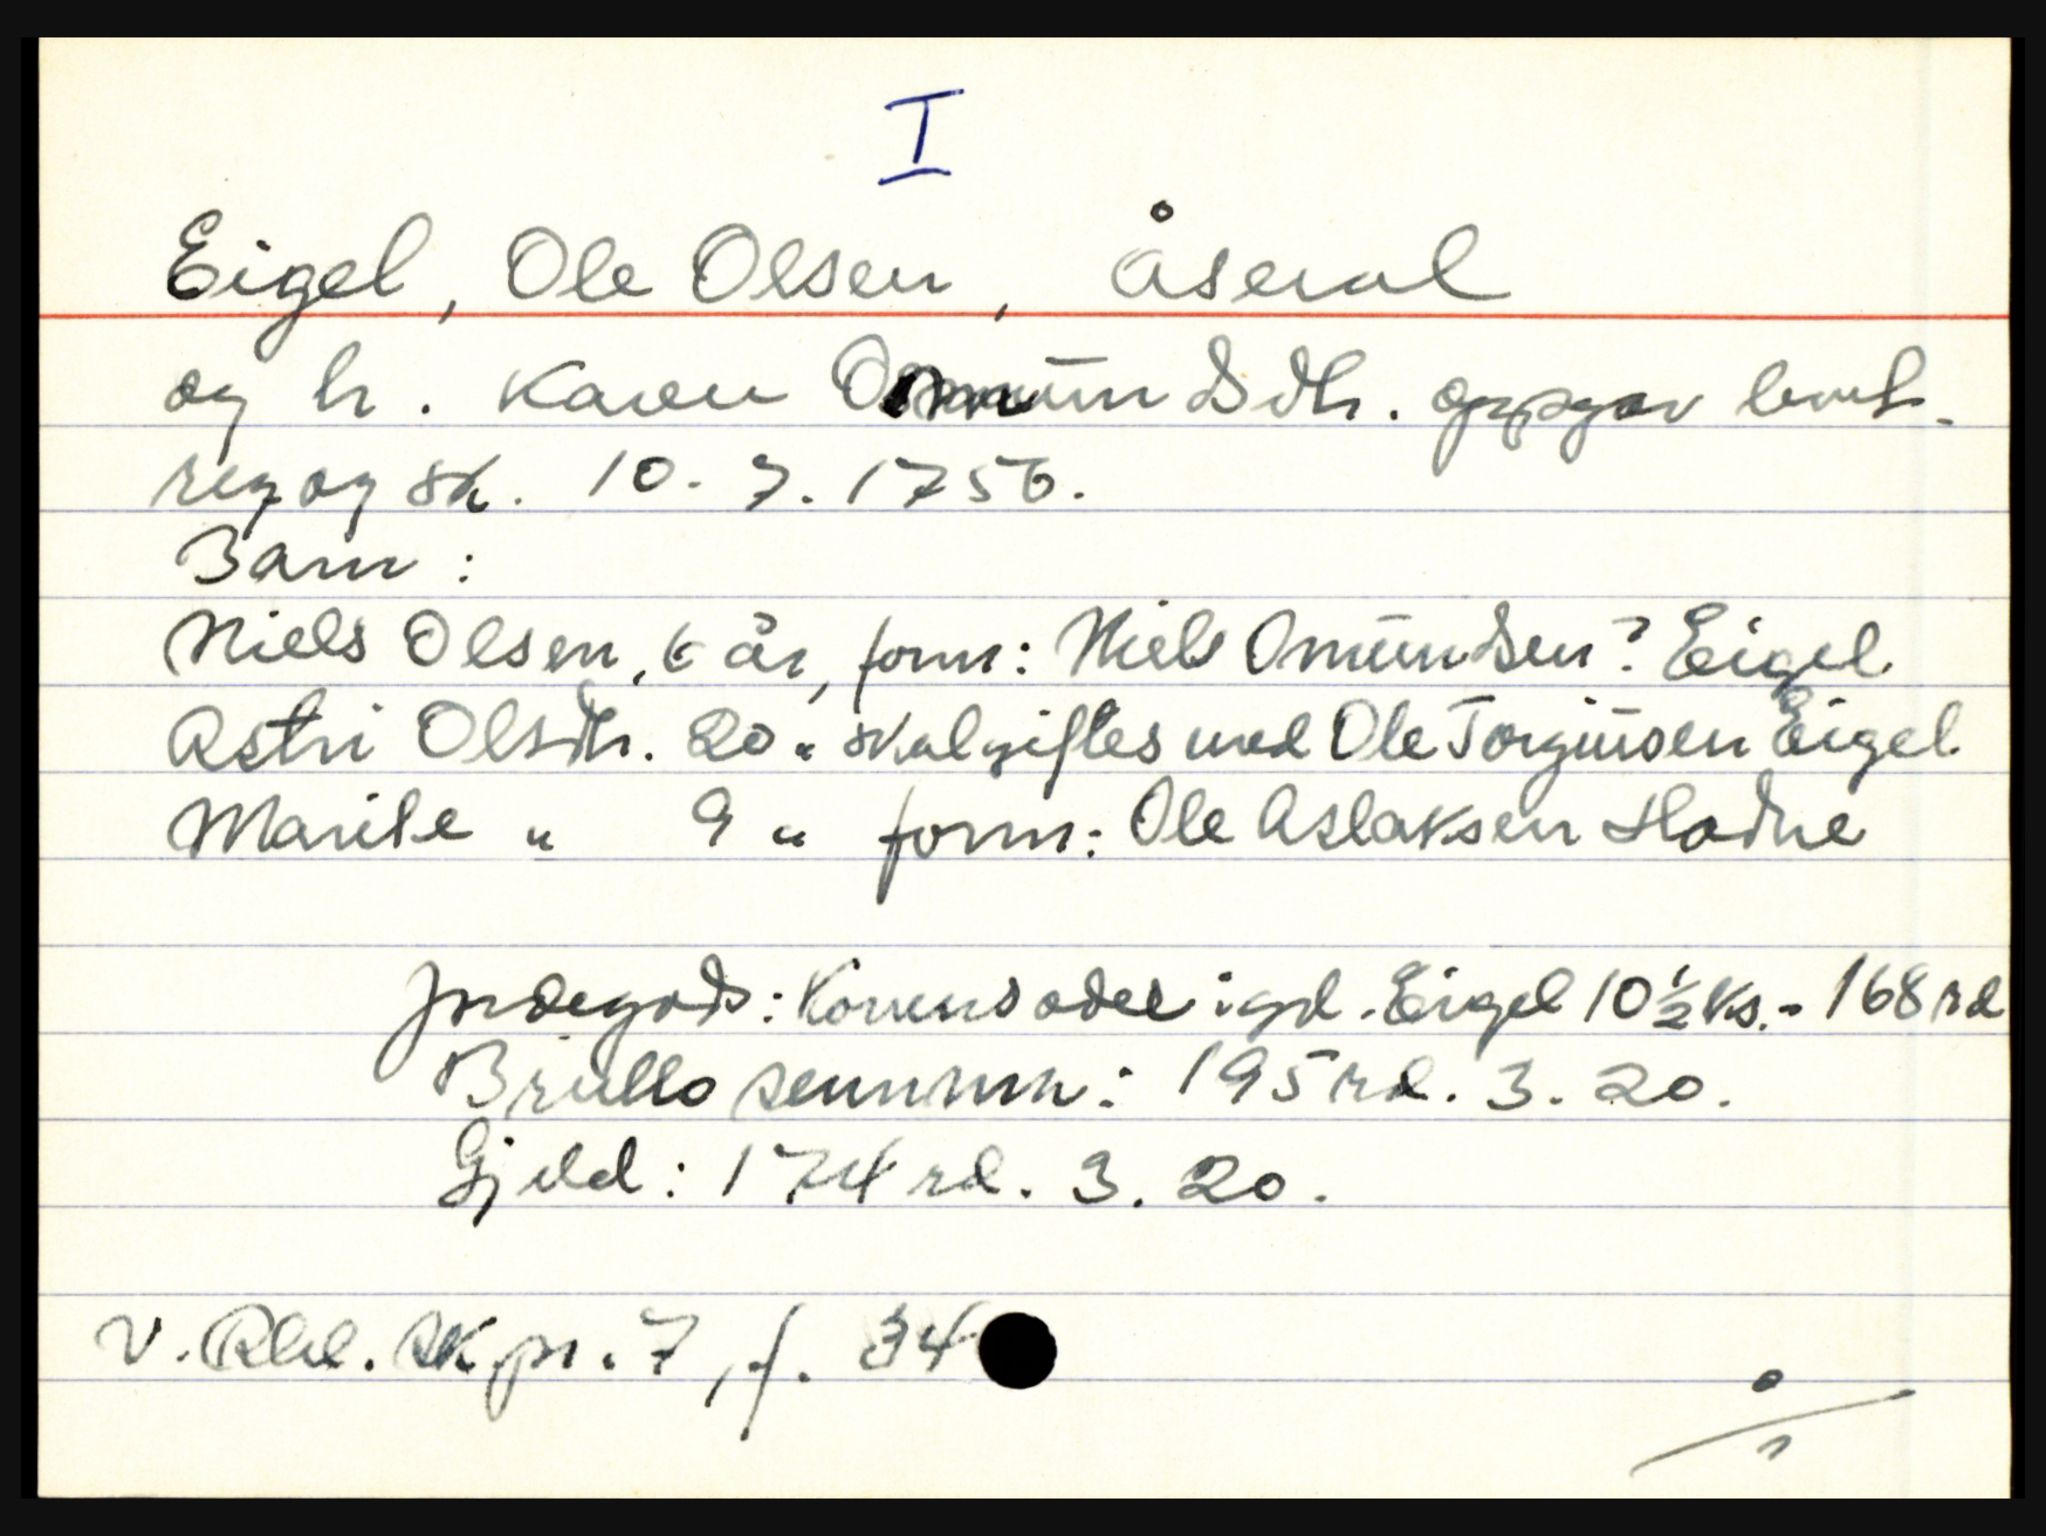 I
Eigel, Ole Olsen, Åseral
og h. Karen Omundsdtr. oppgav bout.
reg og sk. 10. 7. 1756.
Barn:
Niels Olsen, 6 år, form: Niels Omundsen? Eigel
Astri Olsdtr. 20 " skal giftes med Ole Torgiusen Eigel
Marite " 9 " form: Ole Aslaksen Hadne
Jordegods: Konens odel i gd. Eigel 10 ½ ks. - 168 rd
Brutto summm: 195 rd. 3. 20.
Gjeld: 174 rd. 3. 20.
V. Rbl. sk.pr. 7, f. 34